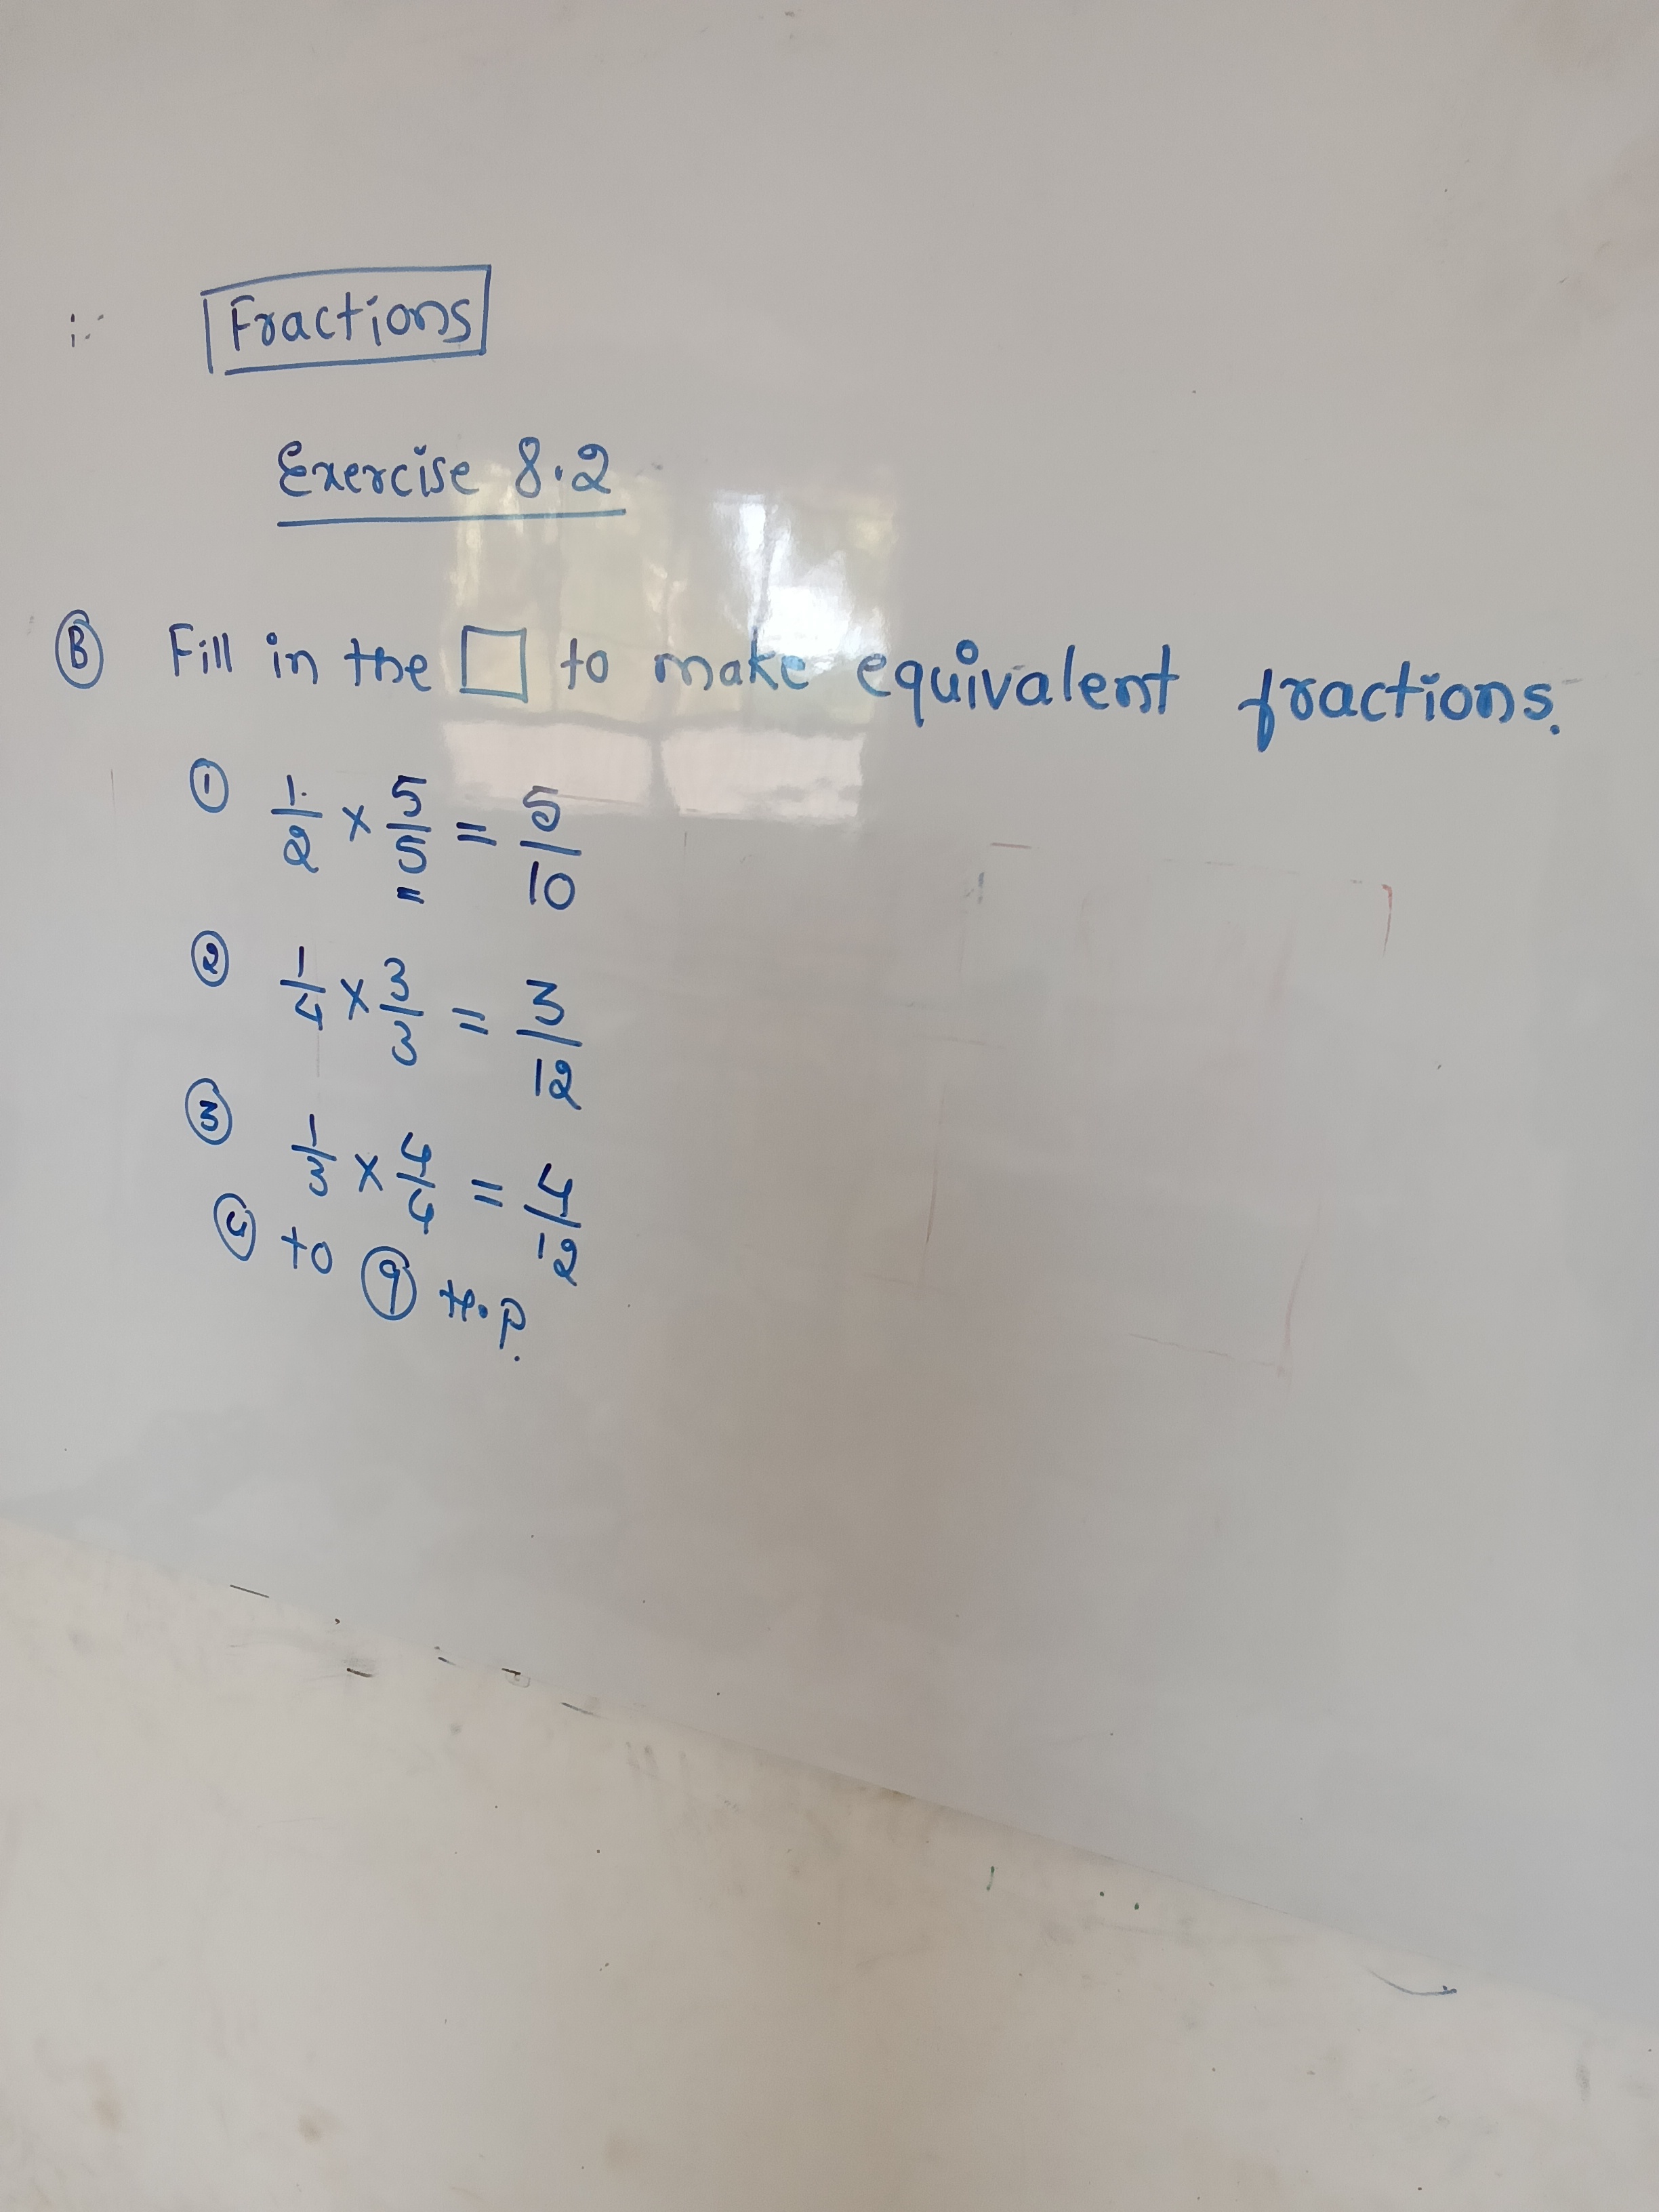 Fractions
Exercise 8.2
B Fill in the □ to make equivalent fractions.
① 1/2 × 5/5 = 5/10
② 1/4 × 3/3 = 3/12
③ 1/3 × 4/4 = 4/12
④ to ⑨ H.P.